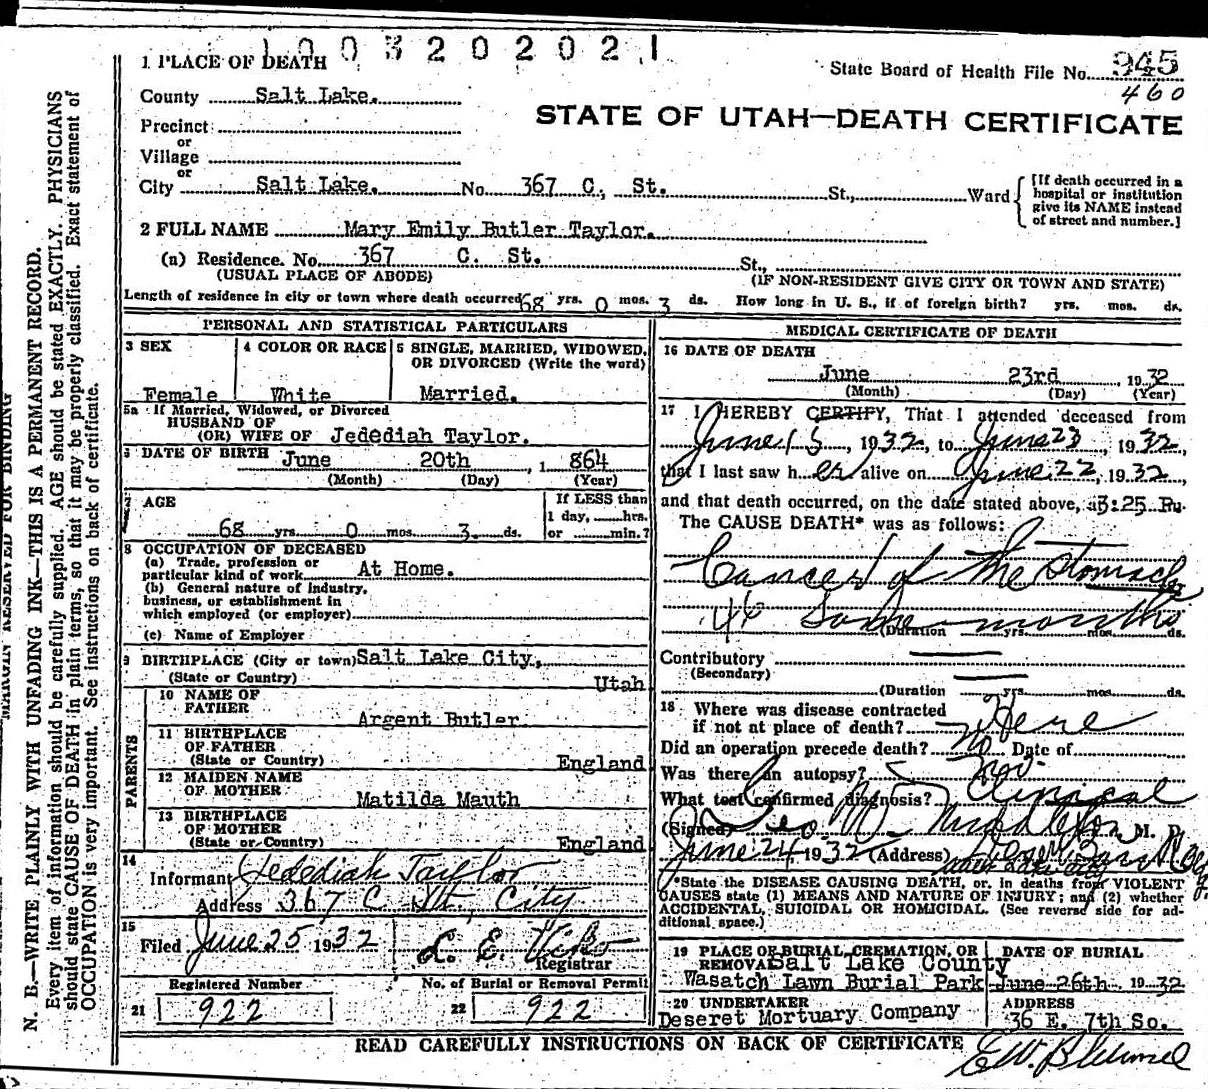 1003202021
1 PLACE OF DEATH
State Board of Health File No. 945
460
County Salt Lake.
STATE OF UTAH—DEATH CERTIFICATE
Precinct
or
Village
or
City Salt Lake. No. 367 C, St. St., Ward
[If death occurred in a
hospital or institution
give its NAME instead
of street and number.]
2 FULL NAME Mary Emily Butler Taylor.
(a) Residence. No. 367 C. St. St.,
(USUAL PLACE OF ABODE) (IF NON-RESIDENT GIVE CITY OR TOWN AND STATE)
Length of residence in city or town where death occurred 68 yrs. 0 mos. 3 ds. How long in U. S., if of foreign birth? yrs. mos. ds.
PERSONAL AND STATISTICAL PARTICULARS
3 SEX
Female
4 COLOR OR RACE
White
5 SINGLE, MARRIED, WIDOWED,
OR DIVORCED (Write the word)
Married.
5a If Married, Widowed, or Divorced
HUSBAND OF
(OR) WIFE OF Jedediah Taylor.
6 DATE OF BIRTH June 20th , 1 864
(Month) (Day) (Year)
7 AGE
68 yrs. 0 mos. 3. ds.
If LESS than
1 day, hrs.
or min.?
8 OCCUPATION OF DECEASED
(a) Trade, profession or
particular kind of work At Home.
(b) General nature of industry,
business, or establishment in
which employed (or employer)
(c) Name of Employer
9 BIRTHPLACE (City or town) Salt Lake City,
(State or Country) Utah
PARENTS
10 NAME OF
FATHER Argent Butler
11 BIRTHPLACE
OF FATHER
(State or Country) England
12 MAIDEN NAME
OF MOTHER Matilda Mauth
13 BIRTHPLACE
OF MOTHER
(State or Country) England
14
Informant Jedediah Taylor
Address 367 C St, City
15
Filed June 25 1932 L. E.
Registrar
Registered Number No. of Burial or Removal Permit
21 922 22 922
MEDICAL CERTIFICATE OF DEATH
16 DATE OF DEATH
June 23rd , 1932
(Month) (Day) (Year)
17 I HEREBY CERTIFY, That I attended deceased from
June 15, 1932, to June 23, 1932,
that I last saw her alive on June 22, 1932,
and that death occurred, on the date stated above, a3:25 Pm.
The CAUSE DEATH* was as follows:
Cancer of the Stomach
46 Some months
(Duration yrs. mos. ds.
Contributory
(Secondary)
(Duration yrs. mos. ds.
18 Where was disease contracted
if not at place of death? Here
Did an operation precede death? no Date of
Was there an autopsy? No.
What test confirmed diagnosis? Clinical
(Signed) Geo W. Middleton M. D.
June 24, 1932 (Address)
*State the DISEASE CAUSING DEATH, or, in deaths from VIOLENT
CAUSES state (1) MEANS AND NATURE OF INJURY; and (2) whether
ACCIDENTAL, SUICIDAL OR HOMICIDAL. (See reverse side for ad-
ditional space.)
19 PLACE OF BURIAL, CREMATION, OR
REMOVAL Salt Lake County
Wasatch Lawn Burial Park
DATE OF BURIAL
June 26th 1932
20 UNDERTAKER
Deseret Mortuary Company
ADDRESS
36 E. 7th So.
READ CAREFULLY INSTRUCTIONS ON BACK OF CERTIFICATE
MARGIN RESERVED FOR BINDING
N. B.—WRITE PLAINLY WITH UNFADING INK—THIS IS A PERMANENT RECORD.
Every item of information should be carefully supplied. AGE should be stated EXACTLY. PHYSICIANS
should state CAUSE OF DEATH in plain terms, so that it may be properly classified. Exact statement of
OCCUPATION is very important. See instructions on back of certificate.